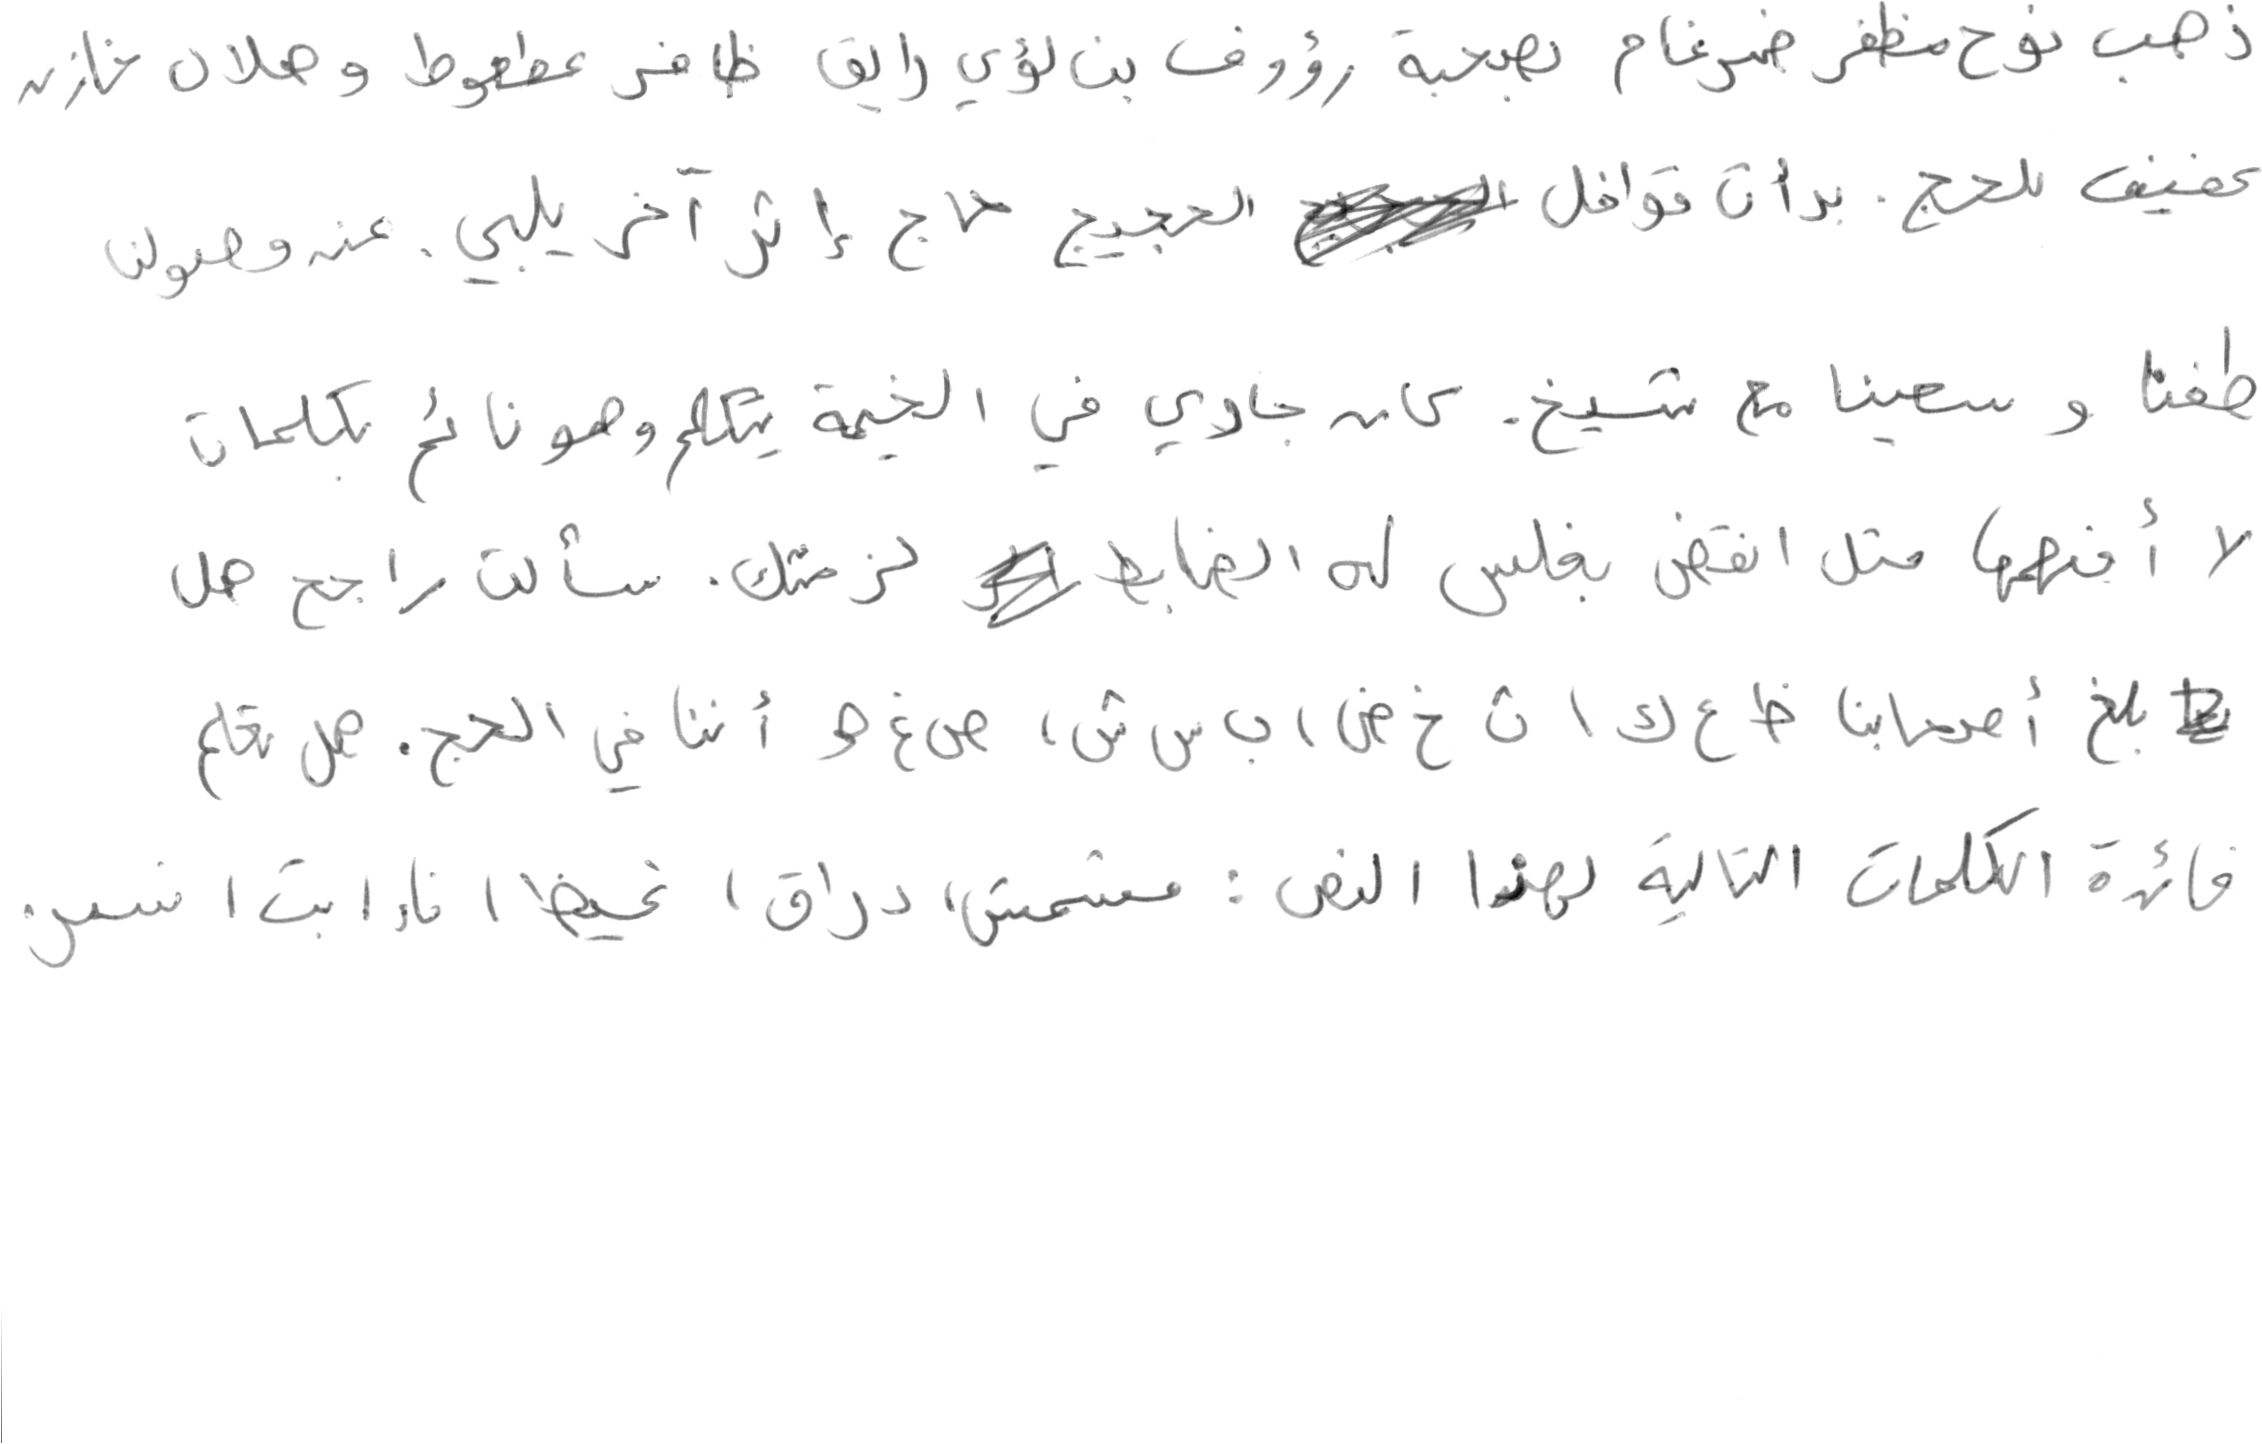 ذهب نوح مظفر ضرغام بصحبة رؤوف بن لؤي رايق ظافر عطعوط وهلال خازن
عفيف للحج. بدأت قوافل الحجيج حاج إثر آخر يلبي. عند وصولنا
طفنا و سعينا مع شيخ. كان جاوي في الخيمة يتكلم وهو نائم بكلمات
لا أفهمها مثل انقض بغلس له الضابط لزمتك. سألت راجح هل
بلغ أصحابنا ظ ع ك ا ث خ ض ا ب س ش، ص غ ط أننا في الحج. هل تعلم
فائدة الكلمات التالية لهذا النص: مشمش، دراق، غيظ، نار، ابت، شمس.